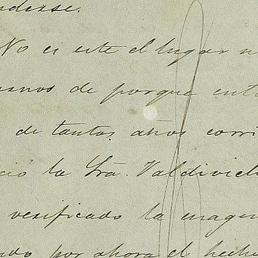 nderse.
No es este el lugar n
arnos de porque ent
de tantos años corri
cio la Sra. Valdivie
verificado la magn
ndo por ahora el hech